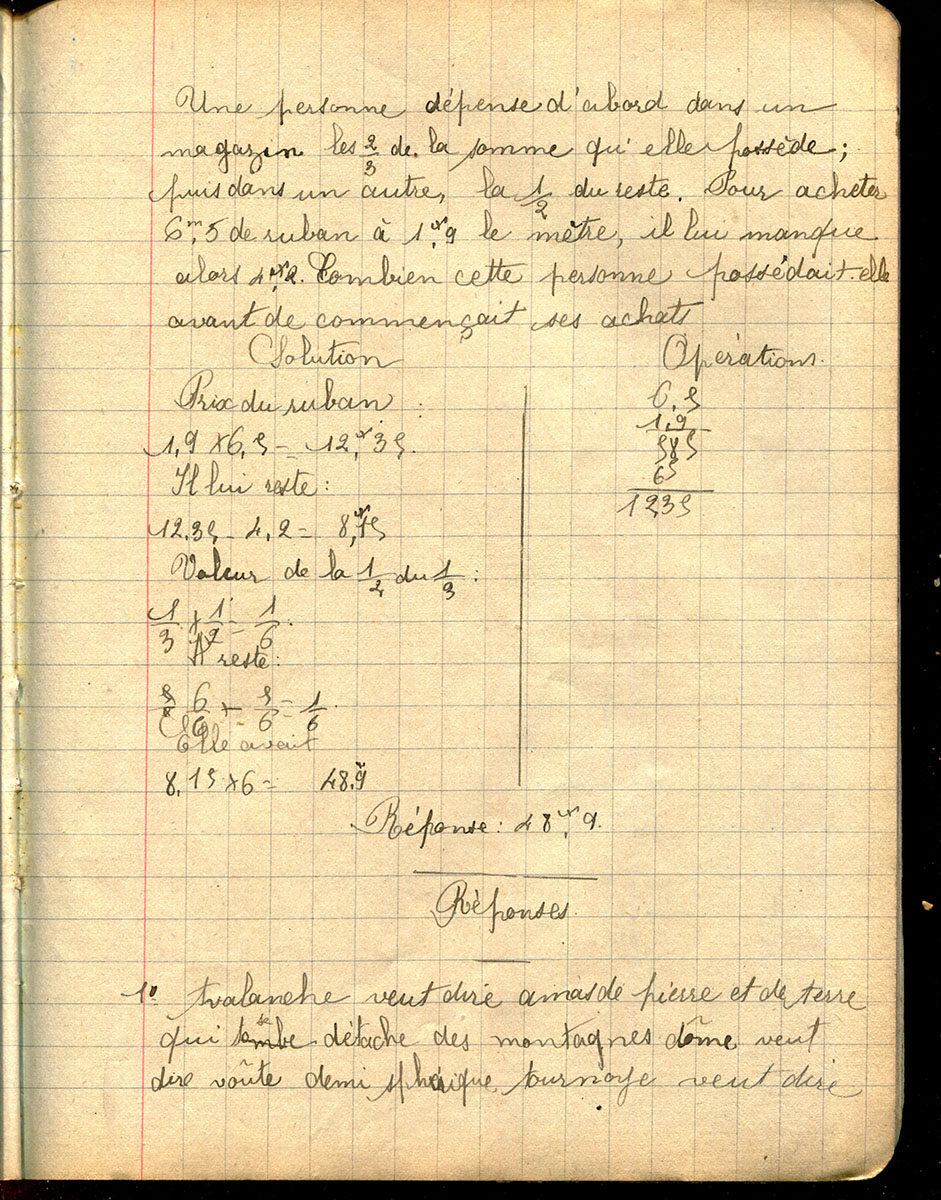 Une personne dépense d'abord dans un
magazin les 2/3 de la somme qu'elle possède;
puis dans un autre, la 1/2 du reste. Pour acheter
6m,5 de ruban à 1f,9 le mètre, il lui manque
alors 4f,2. Combien cette personne possédait-elle
avant de commençait ses achats
Solution Opérations.
Prix du ruban : 6,5
1,9 × 6,5 = 12,f35. 1,9
Il lui reste : 585
65
12.35 - 4,2 = 8,f15 1235
Valeur de la 1/2 du 1/3 :
1/3 × 1/2 = 1/6.
reste:
6/6 - 5/6 = 1/6.
Elle avait
8,15 × 6 = 48,f9
Réponse: 48f,9.
Réponses
1° Avalanche veut dire amas de pierre et de terre
qui se détache des montagnes dôme veut
dire voûte demi sphérique tournoye veut dire